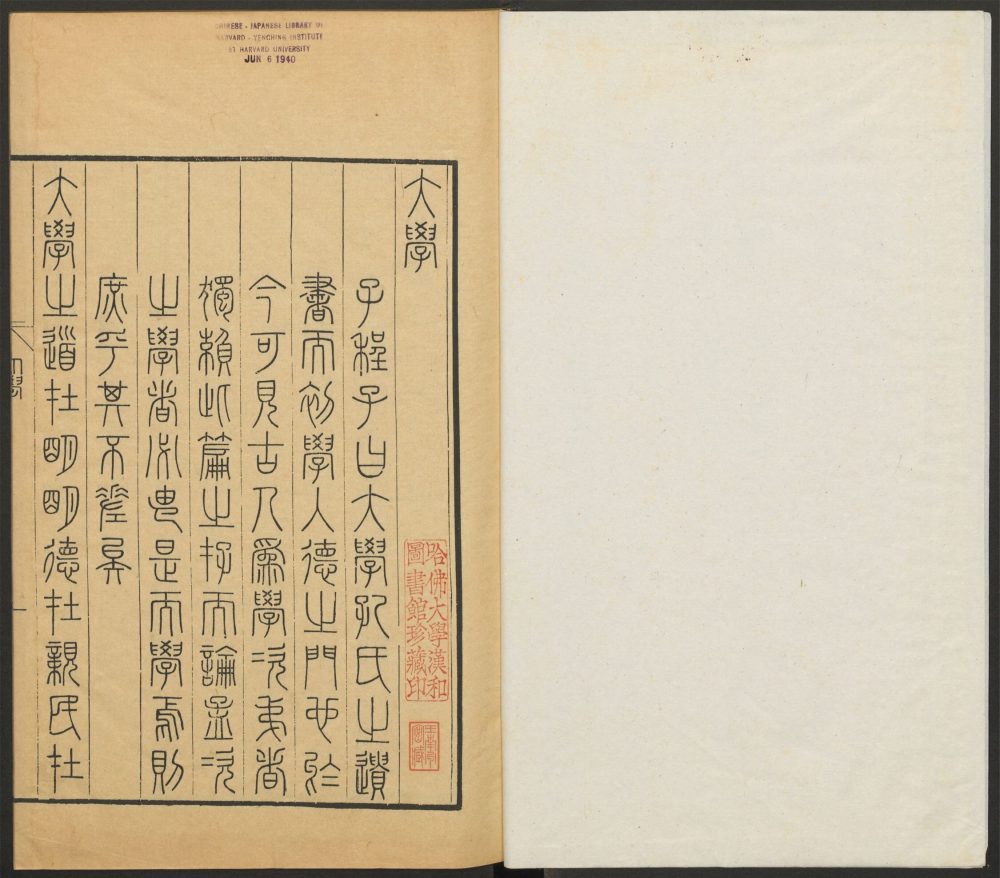 CHINESE - JAPANESE LIBRARY OF
HARVARD - YENCHING INSTITUTE
AT HARVARD UNIVERSITY
JUN 6 1940
大學
哈佛大學漢和
圖書館珍藏印
子程子曰大學孔氏之遺
書而初學入德之門也於
今可見古人爲學次弟者
獨賴此篇之存而論孟次
之學者必由是而學焉則
庶乎其不差矣
大學之道在明明德在親民在